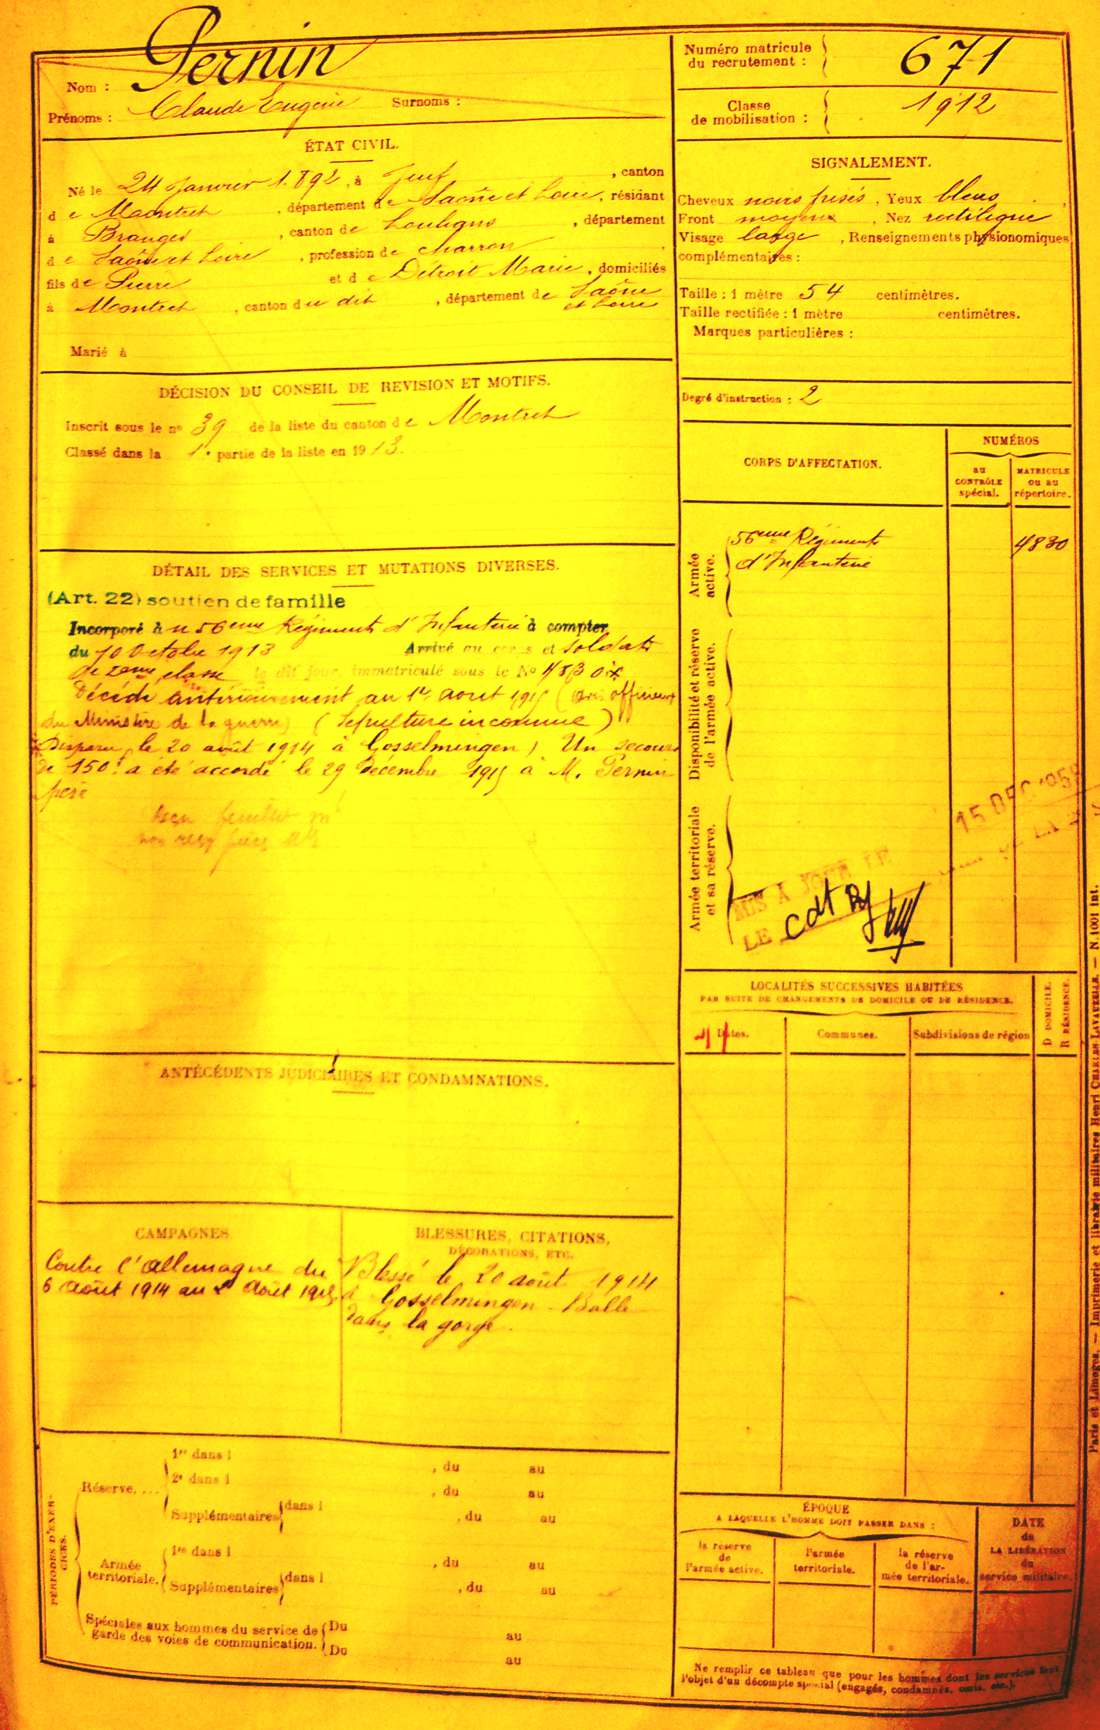 Nom : Pernin
Prénoms : Claude Eugène Surnoms :
ÉTAT CIVIL.
Né le 24 Janvier 1892, à Juif, canton
de Montret, département de Saône et Loire, résidant
à Branges, canton de Louhans, département
de Saône et Loire, profession de charron
fils de Pierre et de Détroit Marie, domiciliés
à Montret, canton du dit, département de Saône
et Loire
Marié à
DÉCISION DU CONSEIL DE REVISION ET MOTIFS.
Inscrit sous le no 39 de la liste du canton de Montret
Classé dans la 1e partie de la liste en 1913.
DÉTAIL DES SERVICES ET MUTATIONS DIVERSES.
(Art. 22) soutien de famille
Incorporé au 56ème Régiment d'Infanterie à compter
du 10 Octobre 1913 Arrivé au corps et soldat
de 2ème classe le dit jour, immatriculé sous le No 4830
Décédé antérieurement au 1er août 1915 (avis officieux
du Ministère de la guerre) (Sépulture inconnue)
Disparu le 20 août 1914 à Gosselmingen) Un secours
de 150f a été accordé le 29 décembre 1915 à M. Pernin
père
ANTÉCÉDENTS JUDICIAIRES ET CONDAMNATIONS.
CAMPAGNES
Contre l'Allemagne du
6 Août 1914 au Août 1915
BLESSURES, CITATIONS,
DÉCORATIONS, ETC.
Blessé le 20 août 1914
à Gosselmingen Balle
dans la gorge.
PÉRIODES D'EXERCICES.
Réserve....
1re dans l , du au
2e dans l , du au
Supplémentaires dans l , du au
Armée
territoriale.
1re dans l , du au
Supplémentaires dans l , du au
Spéciales aux hommes du service de
garde des voies de communication.
Du au
Du au
Numéro matricule
du recrutement : 671
Classe
de mobilisation : 1912
SIGNALEMENT.
Cheveux noirs frisés, Yeux bleus,
Front moyen, Nez rectiligne
Visage large, Renseignements physionomiques
complémentaires :
Taille : 1 mètre 54 centimètres.
Taille rectifiée : 1 mètre centimètres.
Marques particulières :
Degré d'instruction : 2
CORPS D'AFFECTATION.
NUMÉROS
au
CONTRÔLE
spécial.
MATRICULE
ou au
répertoire.
Armée
active.
56ème Régiment
d'Infanterie
4830
Disponibilité et réserve
de l'armée active.
Armée territoriale
et sa réserve.
15 DEC 1958
MIS A JOUR LE
LE
cdt
LOCALITÉS SUCCESSIVES HABITÉES
PAR SUITE DE CHANGEMENTS DE DOMICILE OU DE RÉSIDENCE.
Dates.
Communes.
Subdivisions de région
D DOMICILE.
R RÉSIDENCE.
ÉPOQUE
A LAQUELLE L'HOMME DOIT PASSER DANS :
la réserve
de
l'armée active.
l'armée
territoriale.
la réserve
de l'ar-
mée territoriale.
DATE
de
LA LIBÉRATION
du
service militaire.
Ne remplir ce tableau que pour les hommes dont les services font
l'objet d'un décompte spécial (engagés, condamnés, omis, etc.).
Paris et Limoges. — Imprimerie et librairie militaires Henri CHARLES-LAVAUZELLE. — N. 1001 int.